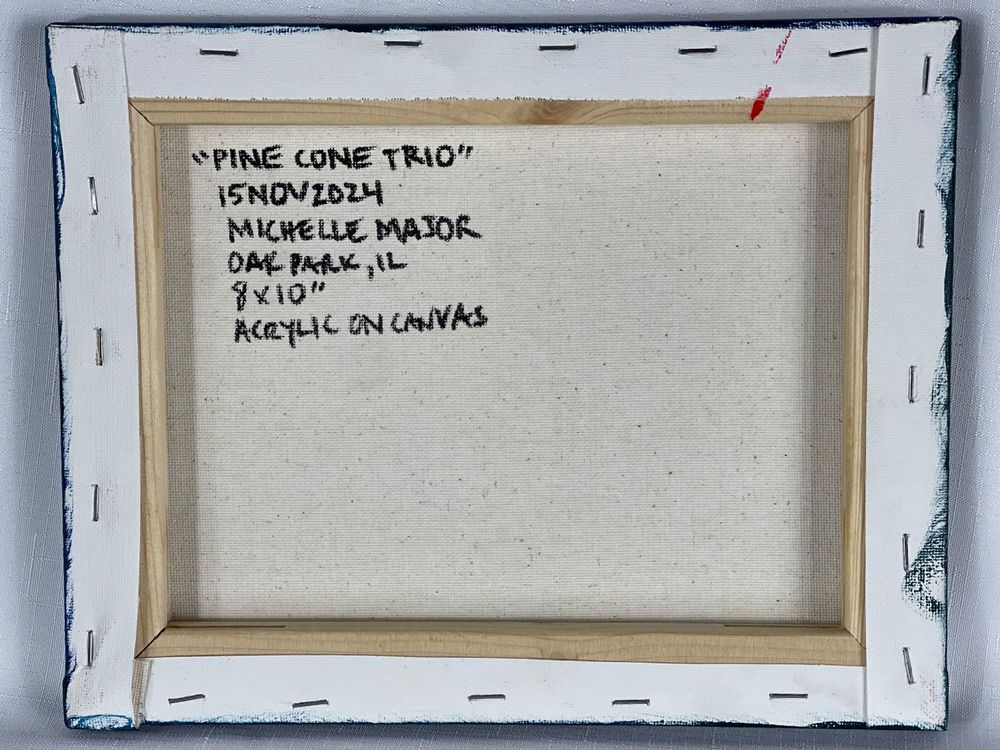 "PINE CONE TRIO"
15NOV2024
MICHELLE MAJOR
OAK PARK, IL
8x10"
ACRYLIC ON CANVAS